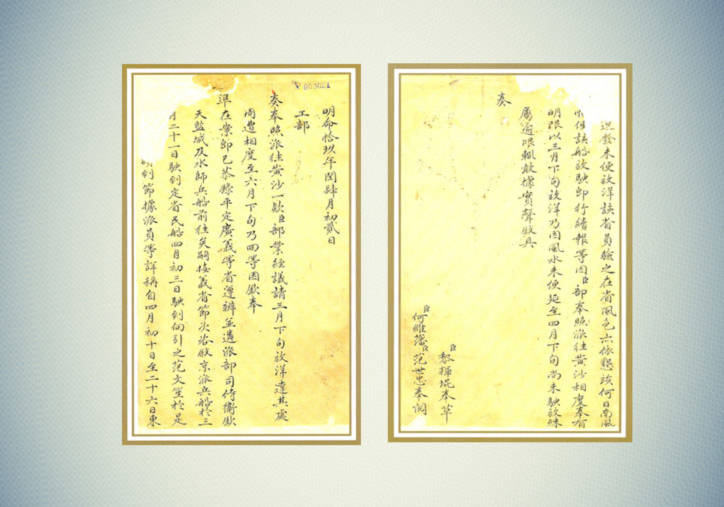 明命拾玖年閏肆月初貳日
工部
奏奉照派往黃沙一款臣部業經議請三月下旬放洋達其處
周遭相度至六月下旬乃回等因欽奉
準在案卽已恭錄平定廣義等省遵辦並遴派部司侍衛欽
天監城及水師兵船前往矣嗣接義省節次咨敘京派兵船於三
月二十一日駛到定省民船四月初三日駛到向引之范文笙於是
到節據派員等詳稱自四月初十日至二十六日東
迅發未便放洋該省員驗之在省風色亦依懸該何日南風
但該船放駛卽行續報等因臣部奉照派往黃沙相度奉有
明限以三月下旬放洋乃因風水未便延至四月下旬尚未駛放殊
屬逾限輒敢據實聲敘具
奏
臣黎輝琨奉草
臣何維藩臣范世忠奉閱